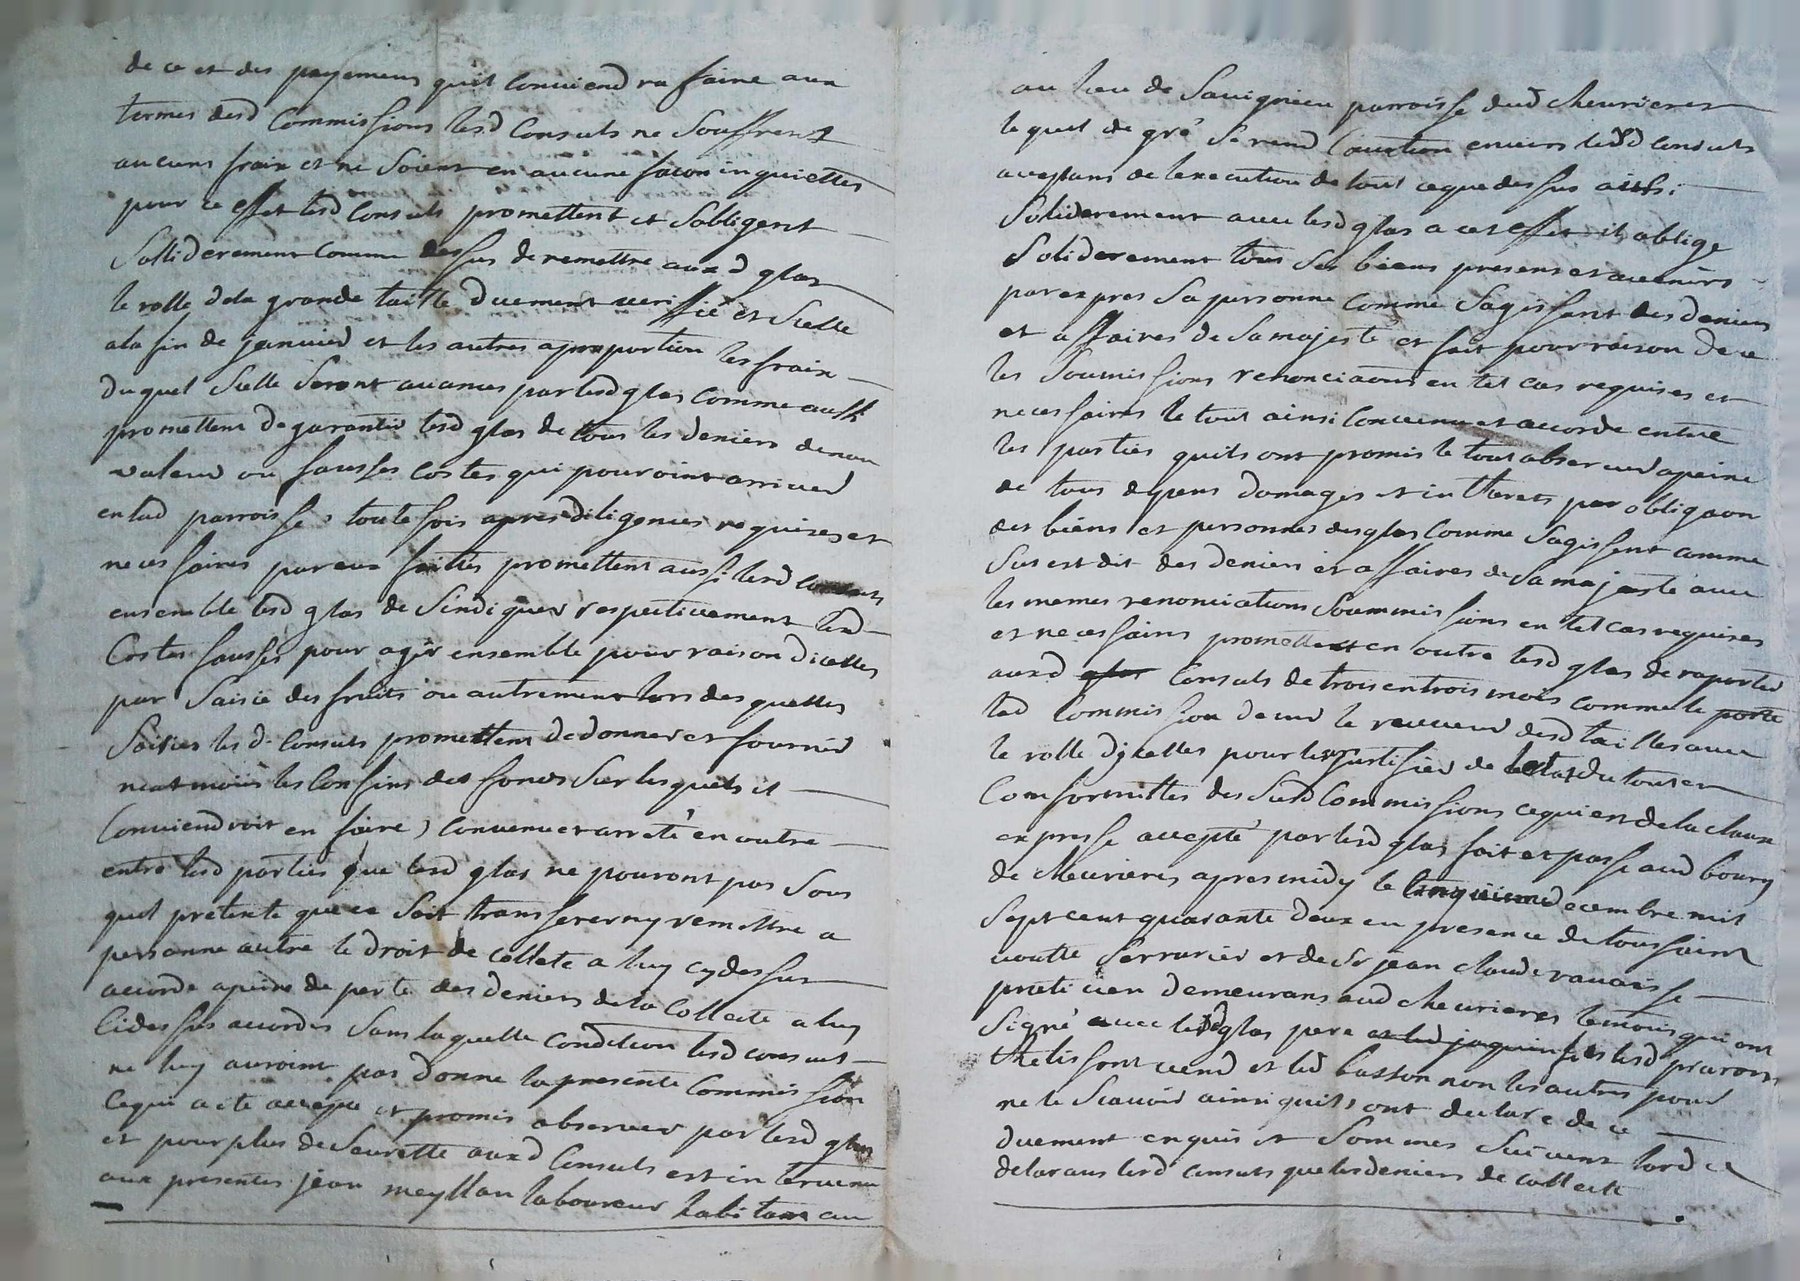 de ce et des payemens quil conviendra faire aux
termes desd Commissions lesd Consuls ne Souffrent
aucuns fraix et ne Soient en aucune facon inquiettes
pour ce effet lesd Consuls promettent et Sobligent
Solliderement comme dessus de remettre auxd glas
le rolle dela grande taille duement veriffié et Scelle
ala fin de janvied et les autres aproportion les fraix
duquel Scelle Seront avances par lesd glas comme aussi
promettent de garantir lesd glas de tous les deniers de non
valeur ou fausses costes qui pouroint arriver
en lad parroisse, toute fois apres diligences requises et
necessaires par eux faittes promettent aussi lesd Consuls
ensemble lesd glas de Sindiquer respectivement lesd
Costes fausses pour agir ensemble pour raison dicelles
par Saisie des fruits ou autrement lors des quelles
Saisies lesd. Consuls promettent de donner et fournir
neatmoins les Confins des fonds Sur lesquels il
Conviendroit en faire) Convenu et arreté en outre
entre lesd parties que lesd glas ne pouront pas Sous
quel pretexte que ce Soit transferer ny remettre a
personne autre le droit de collete a luy cydessus
acorde apeine de perte des deniers de la Collecte a luy
Cidessus acordes Sans laquelle condition lesd consuls
ne luy auroint pas donne la presente Commission
Cequi a ete accepte et promis observer par lesd glas
et pour plus de Seurette auxd Consuls est intervenu
aux presentes jean meyllan laboureur habitant au
au lieu de Savignieu parroisse dud chevrieres
lequel de gré Se rend Caution envers lesd Consuls
aceptans de lexecution de tout ceque dessus aussi
Soliderement avec lesd glas a cet effet il oblige
Soliderement tous Ses biens presens et avenirs
par expres Sa personne comme Sagissant des deniers
et affaires de Samajesté et fait pour raison de ce
les Soumissions renonciaons en tel cas requises et
necessaires le tout ainsi Convenu et acorde entre
les parties quils ont promis le tout observer apeine
de tous depens domages et intherets par obligaon
des biens et personnes desglas Comme Sagissent comme
Sus est dit des deniers et affaires de Samajesté avec
les memes renonciations Soummissions en tel cas requises
et necessaires promettent en outre lesd glas de raporter
auxd glas Consuls de trois en trois mois comme le porte
lad Commission deud le receveur desd tailles avec
le rolle dicelles pour les justifier de letat du tout en
Comformittes des Susd Commissions cequi est de la clause
expresse accepté par lesd glas fait et passe aud bourg
de chevrieres apres midy le Cinquieme decembre mil
Sept cent quarante deux en presence de toussaint
voulte Serrurier et de Sr jean claude ravaisse
praticien demeurans aud chevrieres temoins qui ont
Signé avec lesd glas pere et led jaquin fils lesd
et led basson non les autres pour
ne le Scavoir ainsi quils ont declare de ce
duement enquis et Sommes Suivent lord ce
delarans lesd consuls que les deniers de collecte